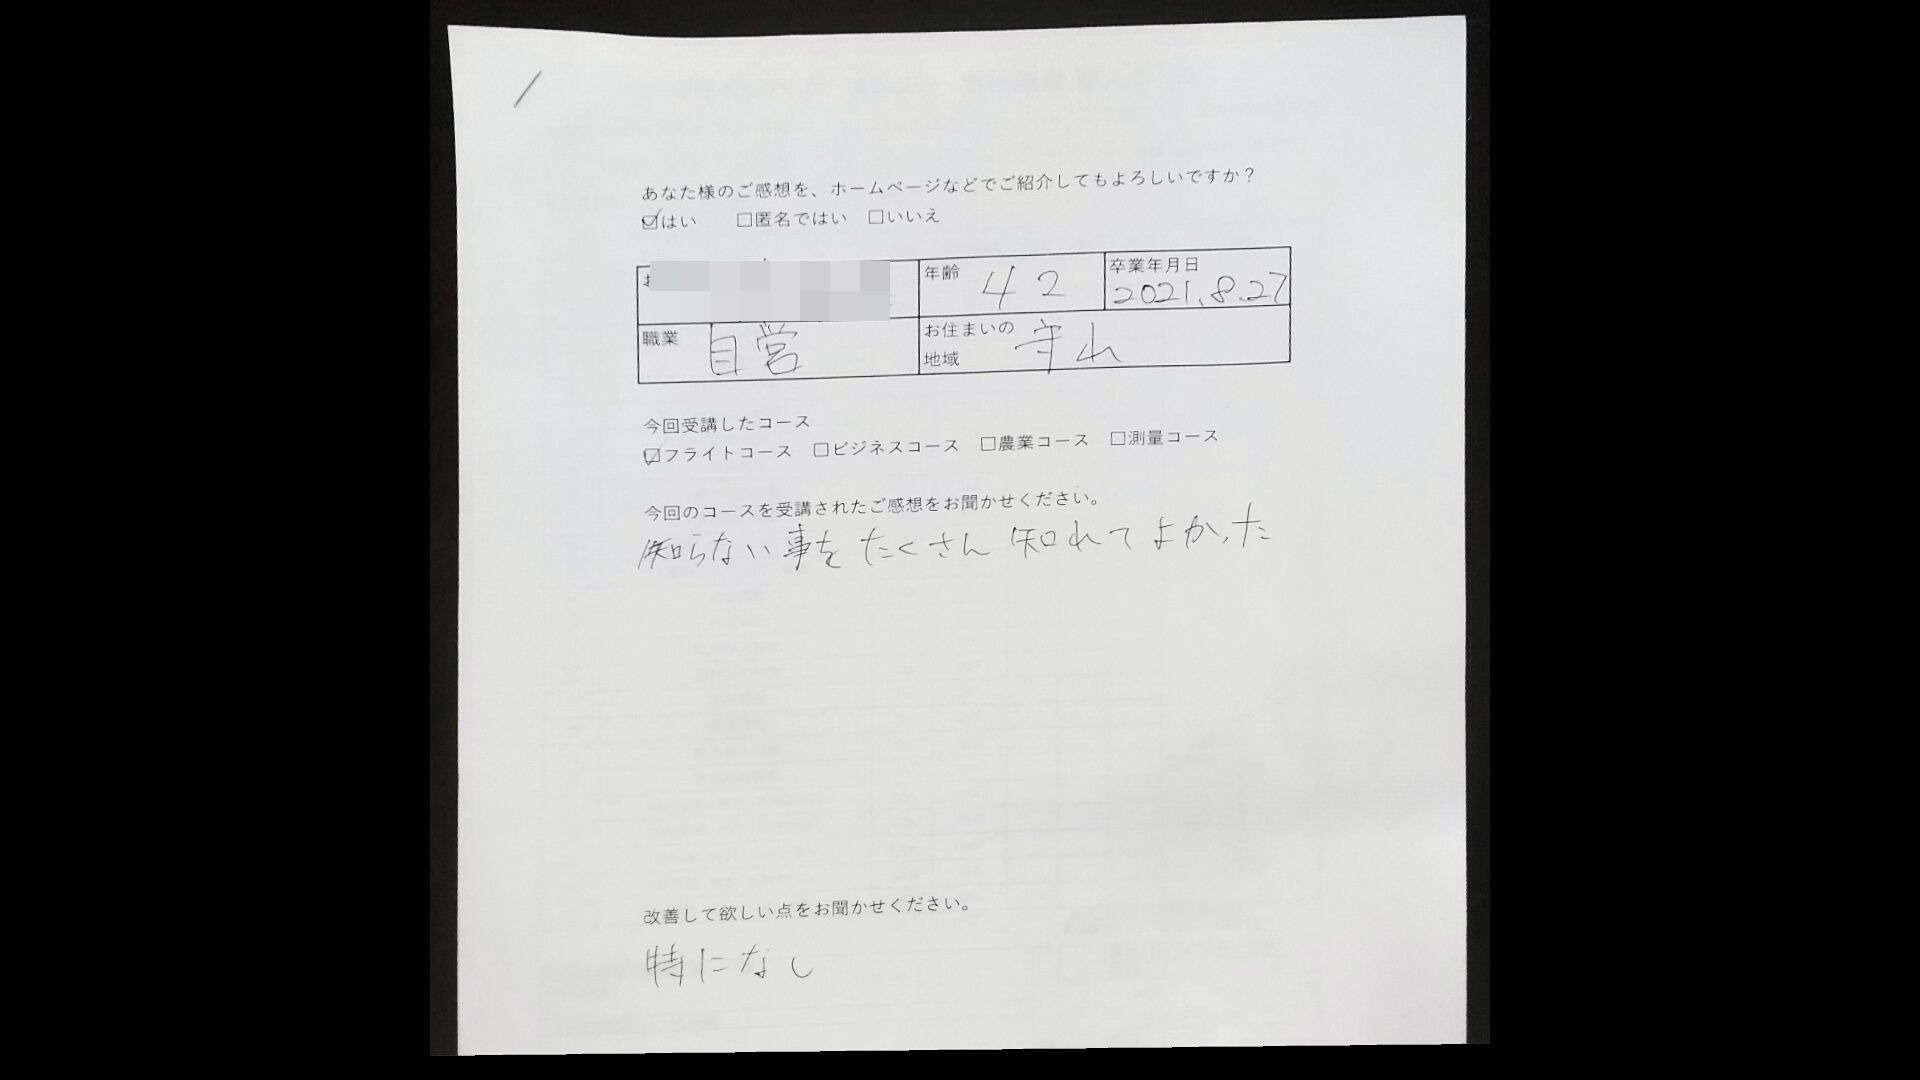 あなた様のご感想を、ホームページなどでご紹介してもよろしいですか？
☑はい　□匿名ではい　□いいえ
年齢 42 卒業年月日 2021.8.27
職業 自営 お住まいの地域 守山
今回受講したコース
☑フライトコース　□ビジネスコース　□農業コース　□測量コース
今回のコースを受講されたご感想をお聞かせください。
知らない事をたくさん知れてよかった
改善して欲しい点をお聞かせください。
特になし